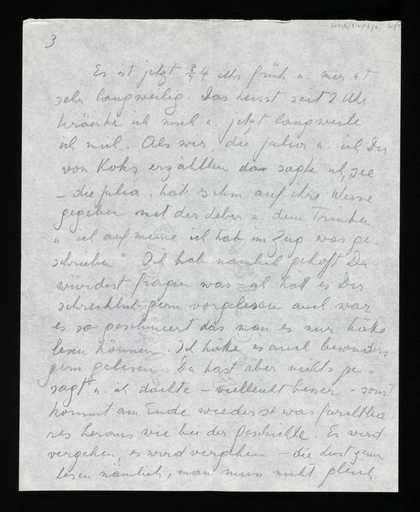 3
Es ist jetzt ¾ 4 Uhr früh u. mir ist
sehr langweilig. Das heisst seit 2 Uhr
kränke ich mich u. jetzt langweile
ich mich. Als wir, die Julia u. ich Dir
von Koks erzählten da sagte ich, sie
– die Julia, hat's ihm auf ihre Weise
gegeben mit der Leber u. dem Trinken
u. ich auf meine ich hab im Zug was ge-
schrieben. Ich hab nämlich gehofft Du
würdest fragen was – ich hätt es Dir
schrecklich gern vorgelesen auch war
es so geschmiert das man es nur hätte
lesen können. Ich hätte es auch besonders
gern gelesen. Du hast aber nichts ge-
sagt u. ich dachte – vielleicht besser – sonst
kommt am Ende wieder so was furchtba
res heraus wie bei der Geschichte. Es wird
vergehen, es wird vergehen – die Lust zum
lesen nämlich, man muss nicht gleich